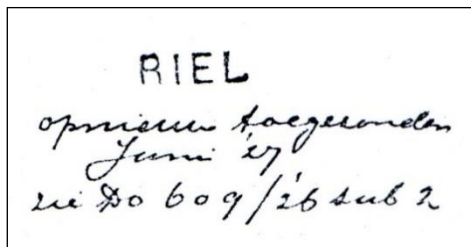 RIEL
opnieuw toegezonden
Juni '27
zie Do 609/'26 sub 2